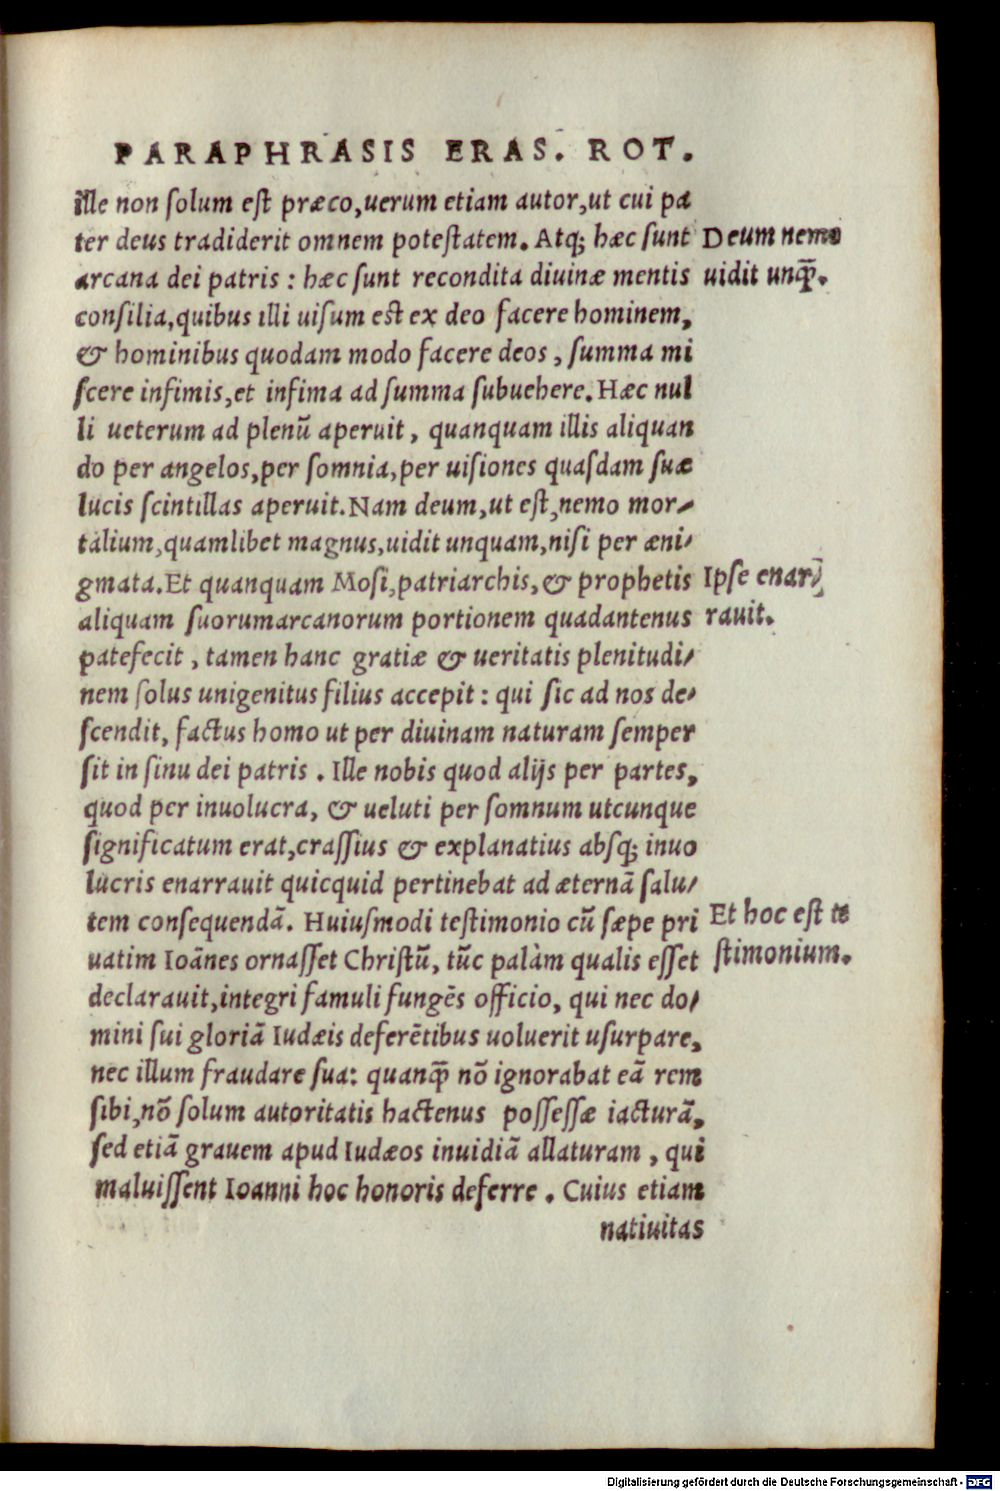 PARAPHRASIS ERAS. ROT.
ille non solum est præco,uerum etiam autor,ut cui pa
ter deus tradiderit omnem potestatem. Atq; hæc sunt
arcana dei patris : hæc sunt recondita diuinæ mentis
consilia,quibus illi uisum est ex deo facere hominem,
& hominibus quodam modo facere deos , summa mi
scere infimis,et infima ad summa subuehere. Hæc nul
li ueterum ad plenũ aperuit , quanquam illis aliquan
do per angelos,per somnia,per uisiones quasdam suæ
lucis scintillas aperuit. Nam deum,ut est,nemo mor-
talium,quamlibet magnus,uidit unquam,nisi per æni-
gmata. Et quanquam Mosi,patriarchis,& prophetis
aliquam suorumarcanorum portionem quadantenus
patefecit , tamen hanc gratiæ & ueritatis plenitudi-
nem solus unigenitus filius accepit : qui sic ad nos de-
scendit, factus homo ut per diuinam naturam semper
sit in sinu dei patris . Ille nobis quod alijs per partes,
quod per inuolucra, & ueluti per somnum utcunque
significatum erat,crassius & explanatius absq; inuo
lucris enarrauit quicquid pertinebat ad æternã salu-
tem consequendã. Huiusmodi testimonio cũ sæpe pri
uatim Ioãnes ornasset Christũ, tũc palàm qualis esset
declarauit,integri famuli fungẽs officio, qui nec do-
mini sui gloriã Iudæis deferẽtibus uoluerit usurpare,
nec illum fraudare sua: quanq̃ nõ ignorabat eã rem
sibi,nõ solum autoritatis hactenus possessæ iacturã,
sed etiã grauem apud Iudæos inuidiã allaturam , qui
maluissent Ioanni hoc honoris deferre . Cuius etiam
natiuitas
Deum nemo
uidit unq̃.
Ipse enar-
rauit.
Et hoc est te
stimonium.
Digitalisierung gefördert durch die Deutsche Forschungsgemeinschaft - DFG